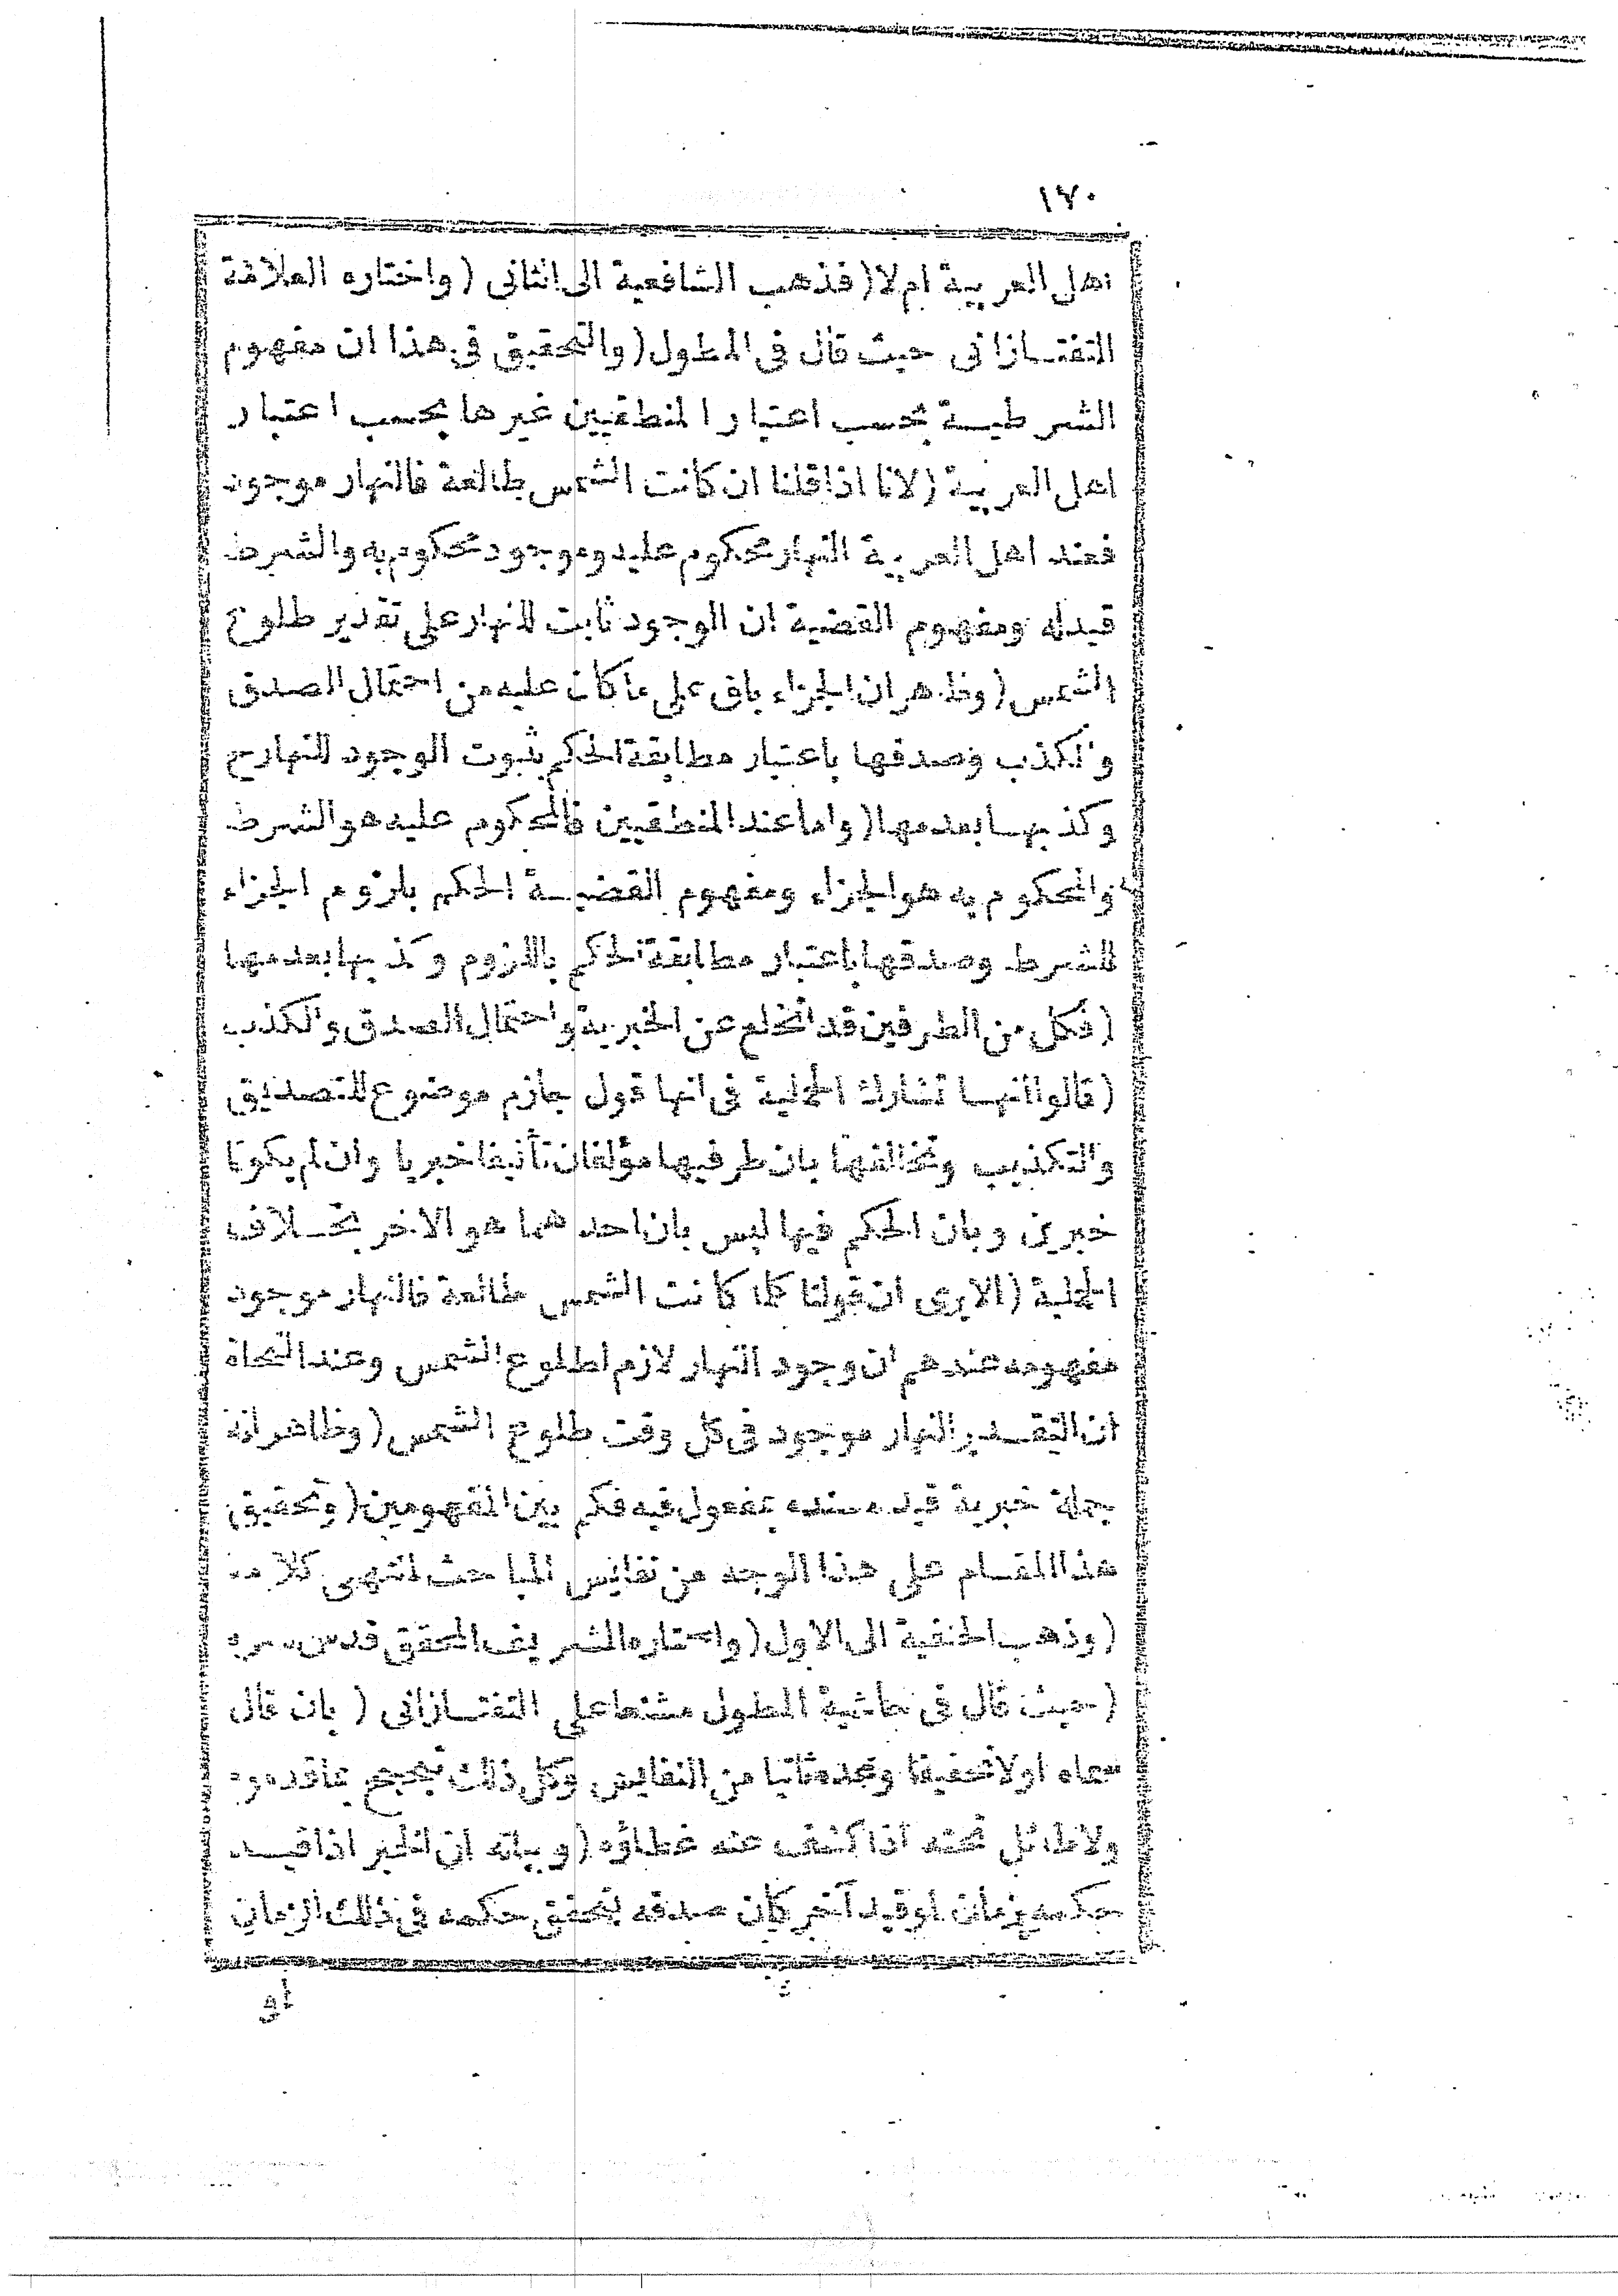 ١٧٠
اهل العربية ام لا (فذهب الشافعية الى الثانى (واختاره العلامة
التفتازانى حيث قال فى المطول (والتحقيق فى هذا ان مفهوم
الشرطية بحسب اعتبار المنطقيين غيرها بحسب اعتبار
اهل العربية (لانا اذا قلنا ان كانت الشمس طالعة فالنهار موجود
فعند اهل العربية النهار محكوم عليه وموجود محكوم به والشرط
قيد له ومفهوم القضية ان الوجود ثابت للنهار على تقدير طلوع
الشمس (وظاهر ان الجزاء باق على ما كان عليه من احتمال الصدق
والكذب وصدقها باعتبار مطابقة الحكم بثبوت الوجود للنهار ح
وكذبها بعدمها (واما عند المنطقيين فالمحكوم عليه هو الشرط
والمحكوم به هو الجزاء ومفهوم القضية الحكم بلزوم الجزاء
للشرط وصدقها باعتبار مطابقة الحكم باللزوم وكذبها بعدمها
(فكل من الطرفين قد انخلع عن الخبرية واحتمال الصدق والكذب
(قالوا انها تشارك الحملية فى انها قول جازم موضوع للتصديق
والتكذيب وتخالفها بان طرفيها مؤلفان تأليفا خبريا وان لم يكونا
خبرين وبان الحكم فيها ليس بان احدهما هو الاخر بخلاف
الحملية (الا يرى ان قولنا كلما كانت الشمس طالعة فالنهار موجود
مفهومه عندهم ان وجود النهار لازم لطلوع الشمس وعند النحاة
ان التقدير النهار موجود فى كل وقت طلوع الشمس (وظاهر انه
جملة خبرية قيد مسنده بمفعول فيه فكم بين المفهومين (وتحقيق
هذا المقام على هذا الوجه من نفائس المباحث انتهى كلامه
(وذهب الحنفية الى الاول (واختاره الشريف المحقق قدس سره
(حيث قال فى حاشية المطول مشنعا على التفتازانى (بان قال
سماه اولا تحقيقا وعده ثانيا من النفائس وكل ذلك
ولا طائل تحته اذا كشف عنه غطاؤه (وبيانه ان الخبر اذا قيد
حكمه بزمان او قيد آخر كان صدقه بتحقق حكمه فى ذلك الزمان
او